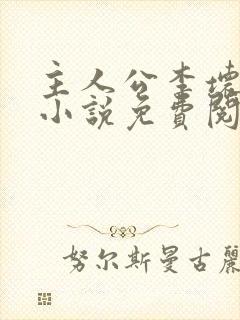 主人公李瓌
小說免費閱
努尔斯曼古麗